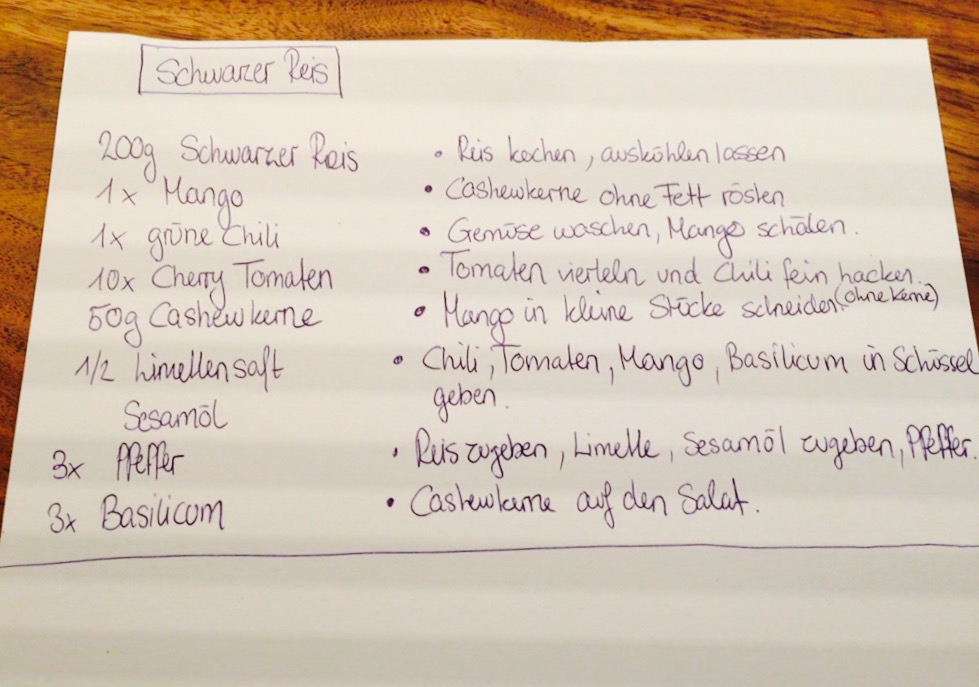 Schwarzer Reis
200g Schwarzer Reis
1x Mango
1x grüne Chili
10x Cherry Tomaten
50g Cashewkerne
1/2 Limettensaft
Sesamöl
3x Pfeffer
3x Basilicum
• Reis kochen, auskühlen lassen
• Cashewkerne ohne Fett rösten
• Gemüse waschen, Mango schälen.
• Tomaten vierteln und Chili fein hacken. (ohne Kerne)
• Mango in kleine Stücke schneiden.
• Chili, Tomaten, Mango, Basilicum in Schüssel
geben.
• Reis zugeben, Limette, Sesamöl zugeben, Pfeffer.
• Cashewkerne auf den Salat.